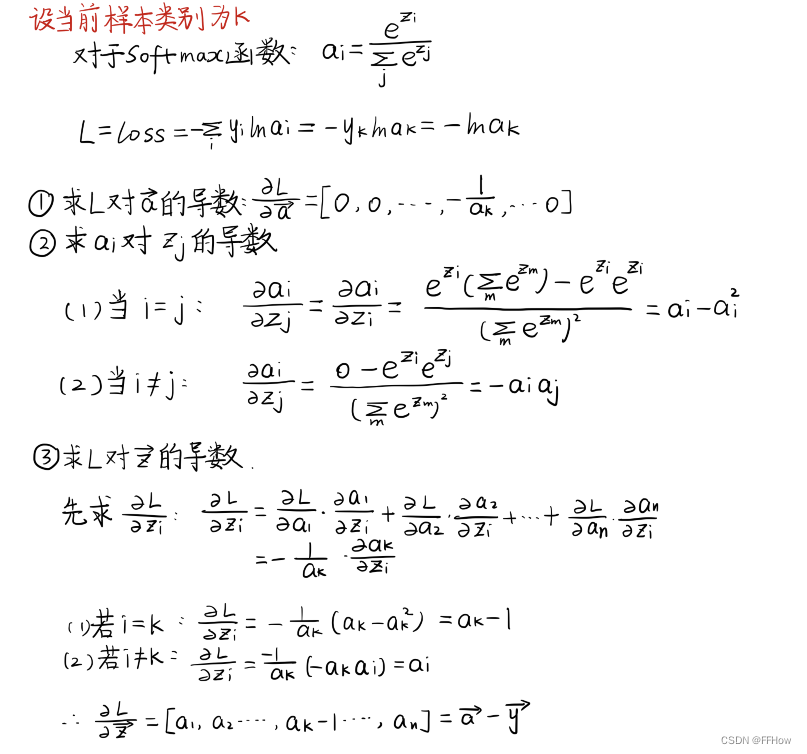 设当前样本类别为k
对于Softmax函数: aᵢ = e^{zᵢ} / Σ_j e^{zⱼ}
L = loss = -Σ_i yᵢ ln aᵢ = -yₖ ln aₖ = -ln aₖ
① 求L对a⃗的导数: ∂L/∂a⃗ = [0, 0, ..., -1/aₖ, ... 0]
② 求aᵢ对zⱼ的导数
(1) 当 i = j: ∂aᵢ/∂zⱼ = ∂aᵢ/∂zᵢ = (e^{zᵢ}(Σ_m e^{zₘ}) - e^{zᵢ}e^{zᵢ}) / (Σ_m e^{zₘ})² = aᵢ - aᵢ²
(2) 当 i ≠ j: ∂aᵢ/∂zⱼ = (0 - e^{zᵢ}e^{zⱼ}) / (Σ_m e^{zₘ})² = -aᵢaⱼ
③ 求L对z⃗的导数.
先求 ∂L/∂zᵢ: ∂L/∂zᵢ = ∂L/∂a₁ · ∂a₁/∂zᵢ + ∂L/∂a₂ · ∂a₂/∂zᵢ + ... + ∂L/∂aₙ · ∂aₙ/∂zᵢ
= -1/aₖ · ∂aₖ/∂zᵢ
(1) 若 i = k: ∂L/∂zᵢ = -1/aₖ (aₖ - aₖ²) = aₖ - 1
(2) 若 i ≠ k: ∂L/∂zᵢ = -1/aₖ (-aₖaᵢ) = aᵢ
∴ ∂L/∂z⃗ = [a₁, a₂ ..., aₖ - 1 ..., aₙ] = a⃗ - y⃗
CSDN @FFHow